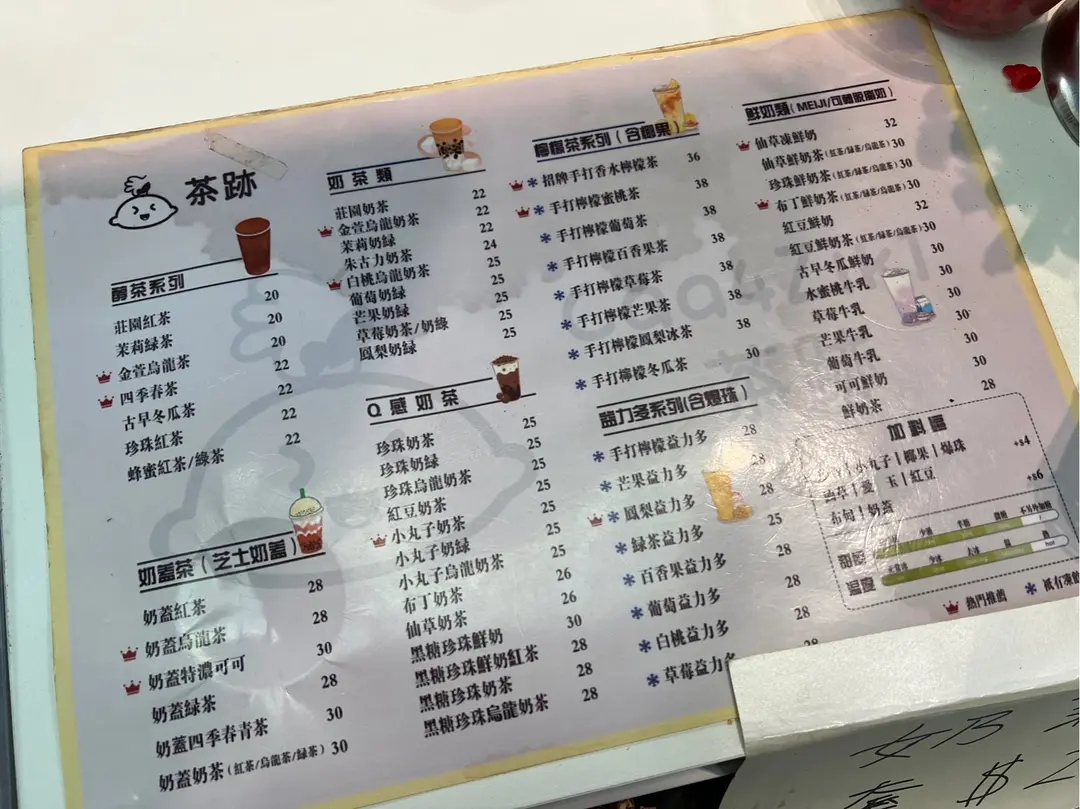 茶跡
醇茶系列
莊園紅茶 20
茉莉綠茶 20
金萱烏龍茶 20
四季春茶 22
古早冬瓜茶 22
珍珠紅茶 22
蜂蜜紅茶/綠茶 22
奶蓋茶(芝士奶蓋)
奶蓋紅茶 28
奶蓋烏龍茶 28
奶蓋特濃可可 30
奶蓋綠茶 28
奶蓋四季春青茶 30
奶蓋奶茶(紅茶/烏龍茶/綠茶) 30
奶茶類
莊園奶茶 22
金萱烏龍奶茶 22
茉莉奶綠 22
朱古力奶茶 24
白桃烏龍奶茶 25
葡萄奶綠 25
芒果奶綠 25
草莓奶茶/奶綠 25
鳳梨奶綠 25
Q感奶茶
珍珠奶茶 25
珍珠奶綠 25
珍珠烏龍奶茶 25
紅豆奶茶 25
小丸子奶茶 25
小丸子奶綠 25
小丸子烏龍奶茶 25
布丁奶茶 26
仙草奶茶 26
黑糖珍珠鮮奶 30
黑糖珍珠鮮奶紅茶 28
黑糖珍珠奶茶 28
黑糖珍珠烏龍奶茶 28
檸檬茶系列(含椰果)
*招牌手打香水檸檬茶 36
*手打檸檬蜜桃茶 38
*手打檸檬葡萄茶 38
*手打檸檬百香果茶 38
*手打檸檬草莓茶 38
*手打檸檬芒果茶 38
*手打檸檬鳳梨冰茶 38
*手打檸檬冬瓜茶 30
益力多系列(含爆珠)
*手打檸檬益力多 28
*芒果益力多 28
*鳳梨益力多 28
*綠茶益力多 25
*百香果益力多 28
*葡萄益力多 28
*白桃益力多 28
*草莓益力多 28
鮮奶類(MEIJI/可轉脫脂奶)
仙草凍鮮奶 32
仙草鮮奶茶(紅茶/綠茶/烏龍茶) 30
珍珠鮮奶茶(紅茶/綠茶/烏龍茶) 30
布丁鮮奶茶(紅茶/綠茶/烏龍茶) 30
紅豆鮮奶 32
紅豆鮮奶茶(紅茶/綠茶/烏龍茶) 30
古早冬瓜鮮奶 30
水蜜桃牛乳 30
草莓牛乳 30
芒果牛乳 30
葡萄牛乳 30
可可鮮奶 30
鮮奶茶 28
加料區
小丸子|椰果|爆珠 +$4
仙草|愛玉|紅豆
布甸|奶蓋 +$6
甜度
溫度
熱門推薦 *祇有凍飲
奶
$2